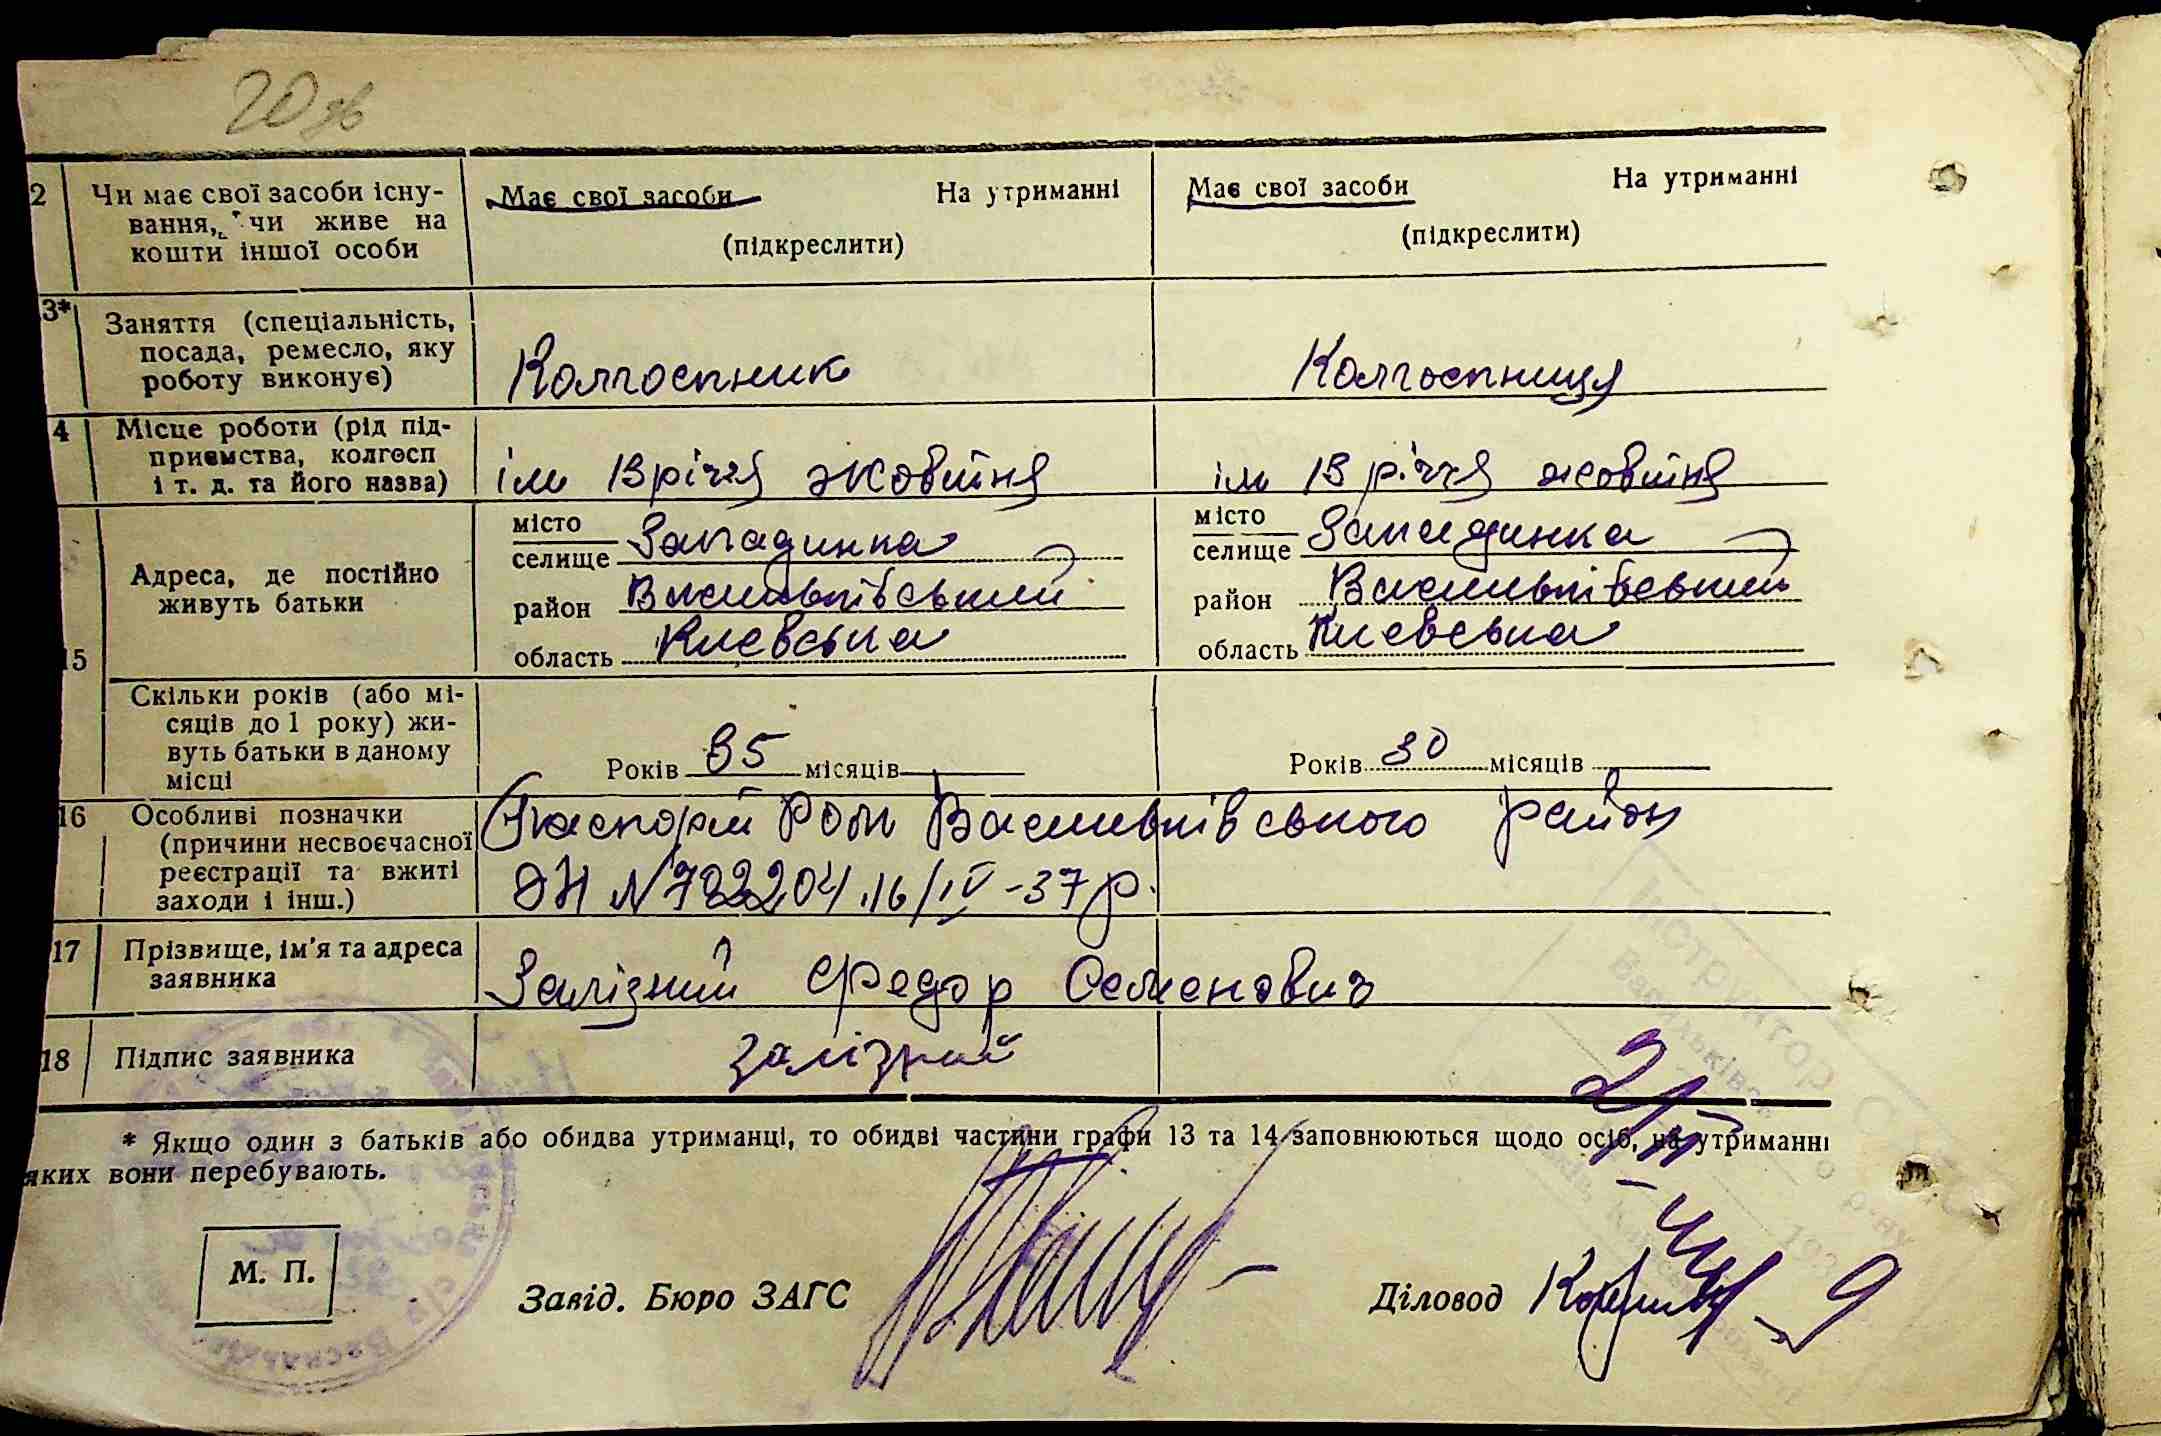 20 зв
2 Чи має свої засоби існу-
вання, чи живе на
кошти іншої особи
Має свої засоби На утриманні
(підкреслити)
Має свої засоби На утриманні
(підкреслити)
3* Заняття (спеціальність,
посада, ремесло, яку
роботу виконує)
Колгоспник
Колгоспниця
4 Місце роботи (рід під-
приємства, колгосп
і т. д. та його назва)
ім 13 річчя жовтня
ім 13 річчя жовтня
15 Адреса, де постійно
живуть батьки
місто
селище Западинка
район Васильківський
область Києвська
місто
селище Западинка
район Васильківський
область Києвська
Скільки років (або мі-
сяців до 1 року) жи-
вуть батьки в даному
місці
Років 35 місяців
Років 30 місяців
16 Особливі позначки
(причини несвоєчасної
реєстрації та вжиті
заходи і інш.)
Паспорт Васильківського район
№ 16/IV-37 р.
17 Прізвище, ім'я та адреса
заявника
Залізний Федор Семенович
18 Підпис заявника
Залізний
* Якщо один з батьків або обидва утриманці, то обидві частини графи 13 та 14 заповнюються щодо осіб, на утриманні
яких вони перебувають.
М. П.
Завід. Бюро ЗАГС
Діловод